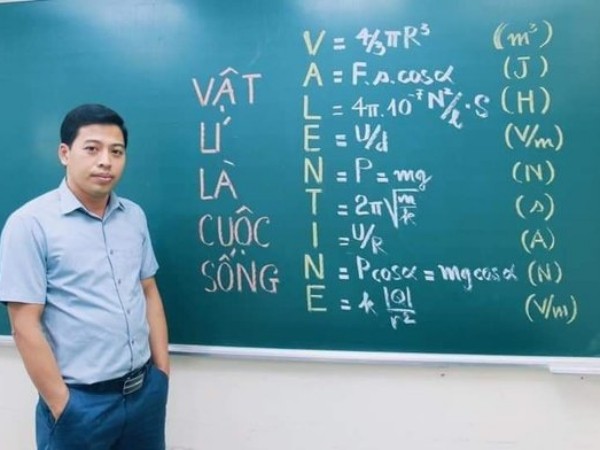 VẬT
LÍ
LÀ
CUỘC
SỐNG
V = 4/3πR³ (m³)
A = F.s.cosα (J)
L = 4π.10⁻⁷ N²/ℓ . S (H)
E = U/d (V/m)
N = P = mg (N)
T = 2π√(m/k) (s)
I = U/R (A)
N = Pcosα = mgcosα (N)
E = k |Q|/r² (V/m)